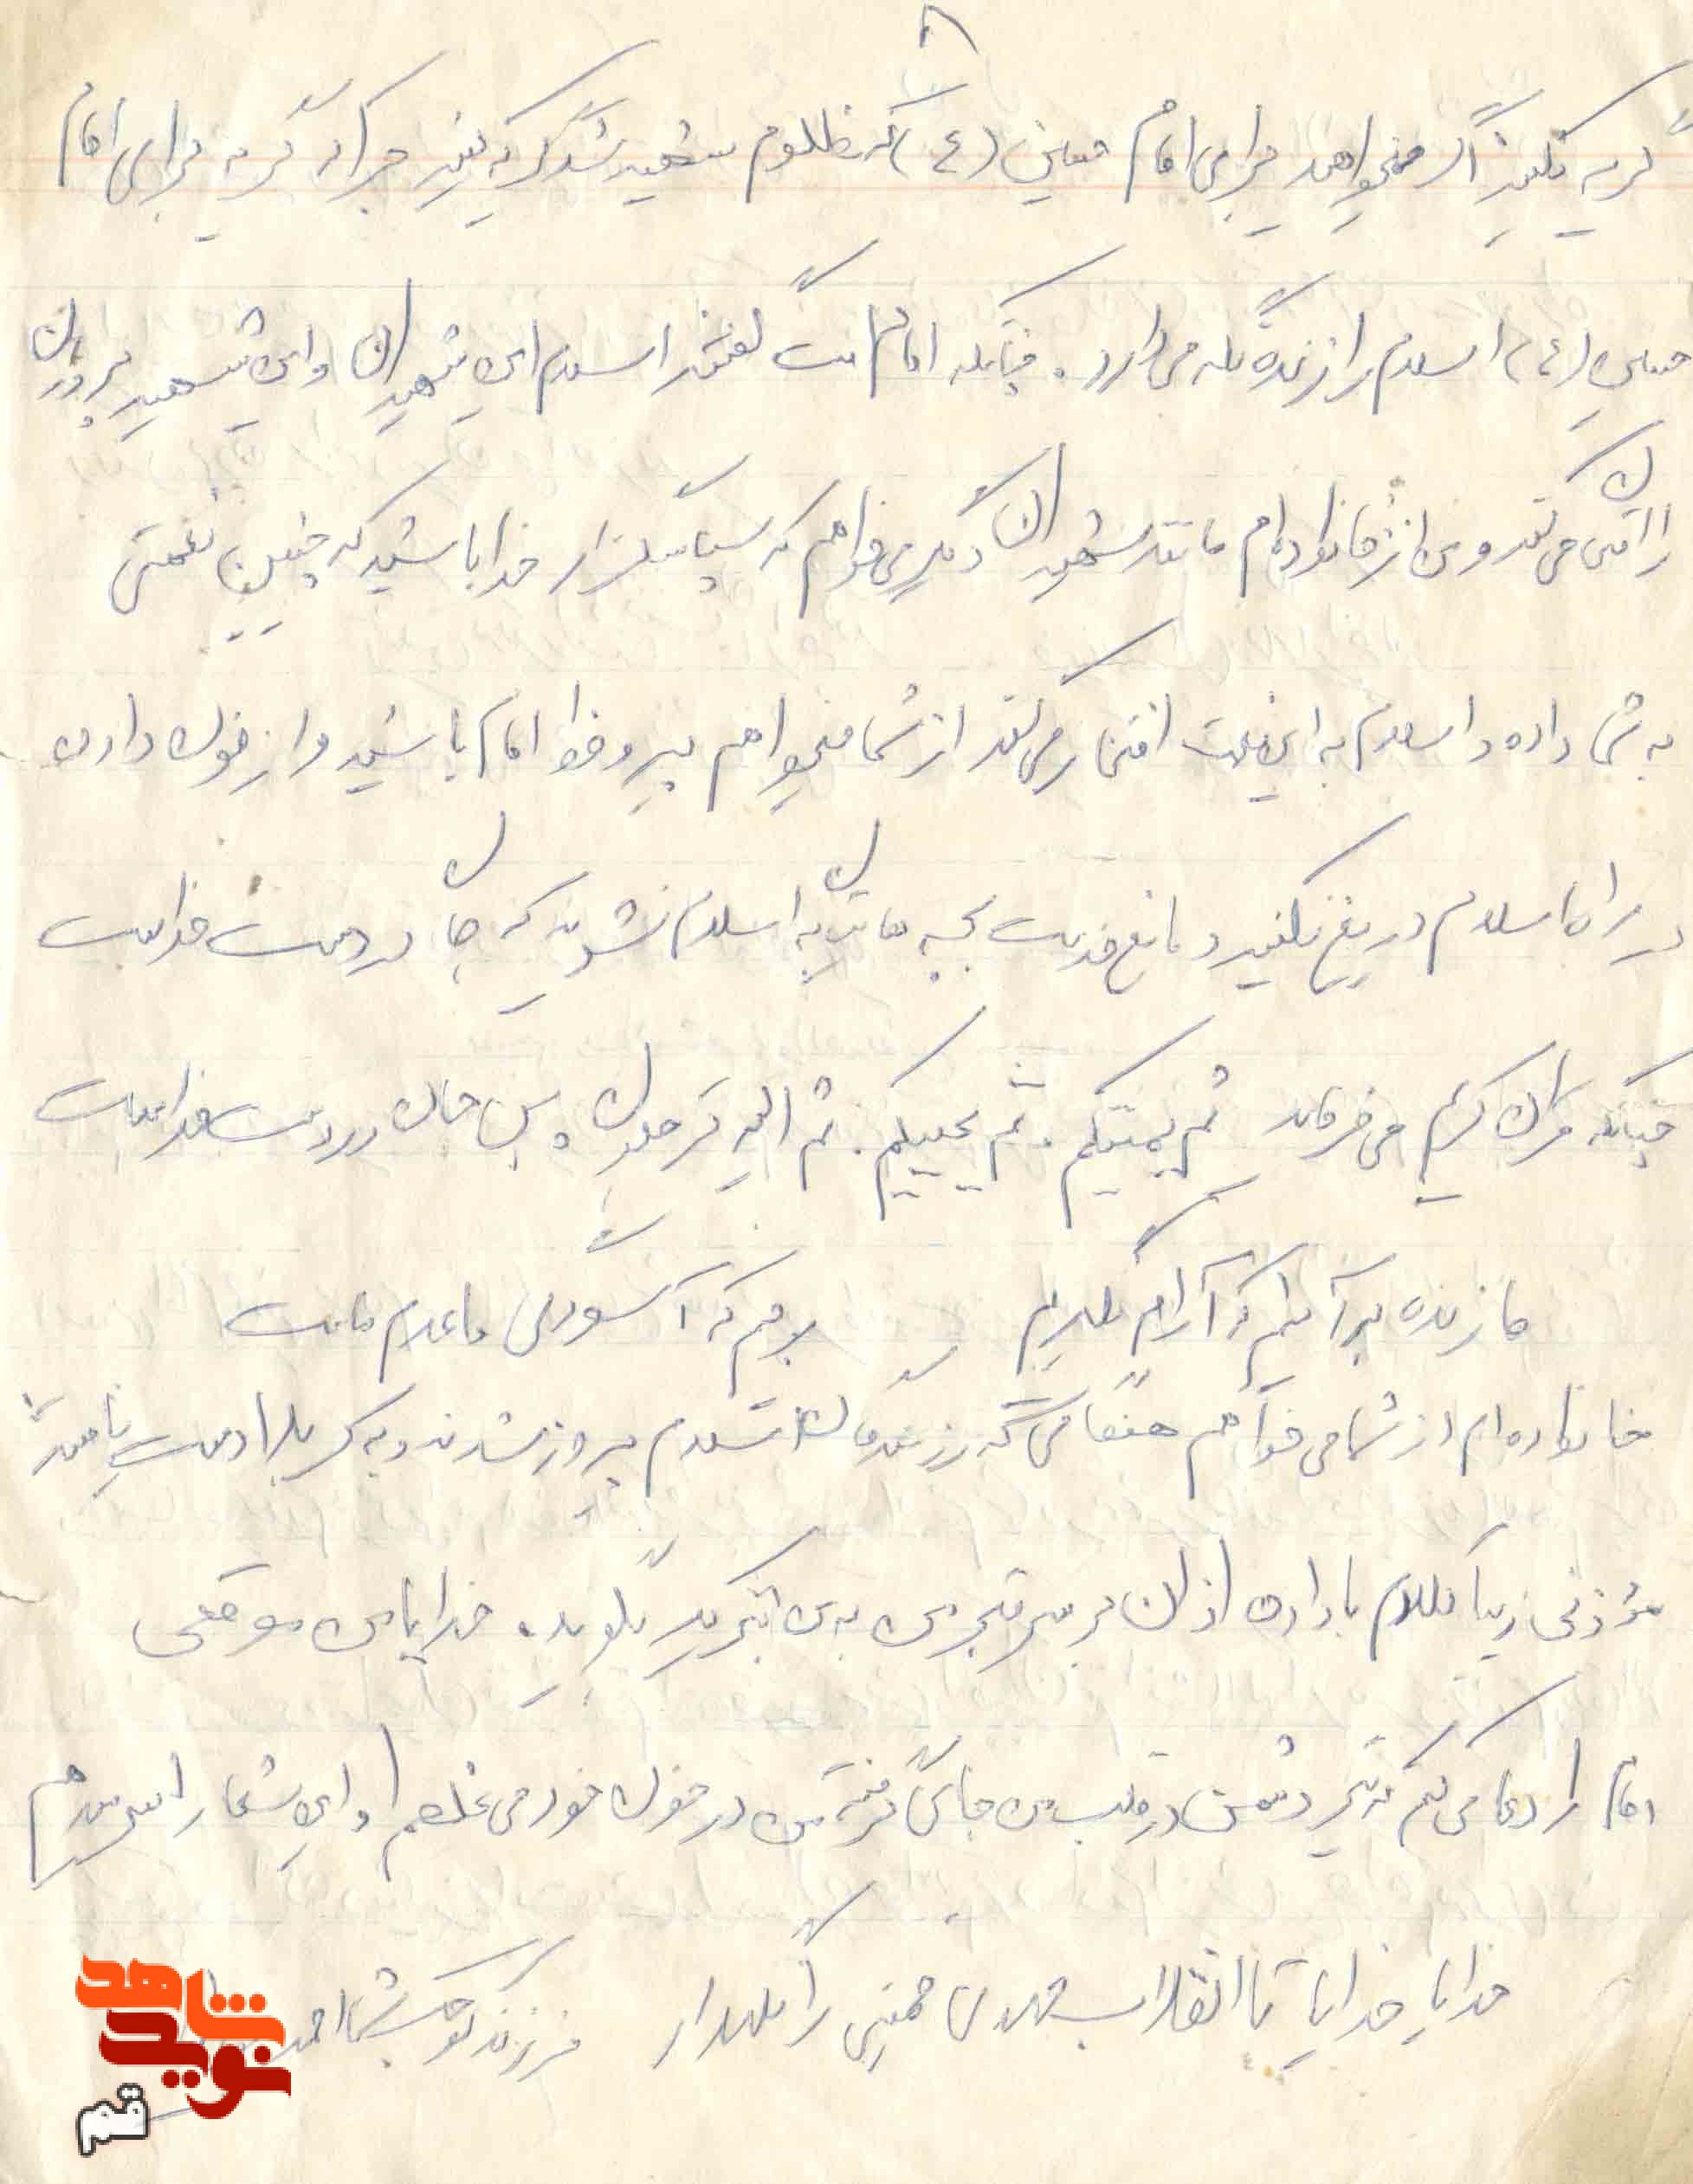 ۸
گریه نکنید اگر میخواهید برای امام حسین (ع) که مظلوم شهید شد گریه کنید چرا که گریه برای امام
حسین (ع) اسلام را زنده نگه می دارد. چنانکه امام امت گفتند اسلام این شهیدان و این شهید پروران
را می کند و من از خانواده ام مانند شهیدان دیگر می خواهم که سپاسگزار خدا باشید که چنین نعمتی
به شما داده و اسلام به این ملت افتخار می کند از شما میخواهم پیرو خط امام باشید و از خون دادن
در راه اسلام دریغ نکنید و مانع خدمت بچه هایتان به اسلام نشوید که جان در دست خداست
چنانکه قرآن کریم می فرماید ثم یمیتکم. ثم یحییکم. ثم الیه ترجعون. پس جان در دست خداست
ما زنده بر آنیم که آرام نگیریم موجیم که آسودگی ما عدم ماست
خانواده ام از شما می خواهم هنگامی که رزمندگان اسلام پیروز شدند و به کربلا دست یافتند
مؤذنی زیبا کلام با دادن اذان بر سر قبر من به من تبریک بگوید. خدایا من موقعی
امام را دعا می کنم که تیر دشمن در قلب من جای گرفته من در خون خود می غلطم و این شعار را می دهم
خدایا خدایا تا انقلاب مهدی خمینی را نگهدار فرزند کوچک شما احمد
شاهد
نوید
قم